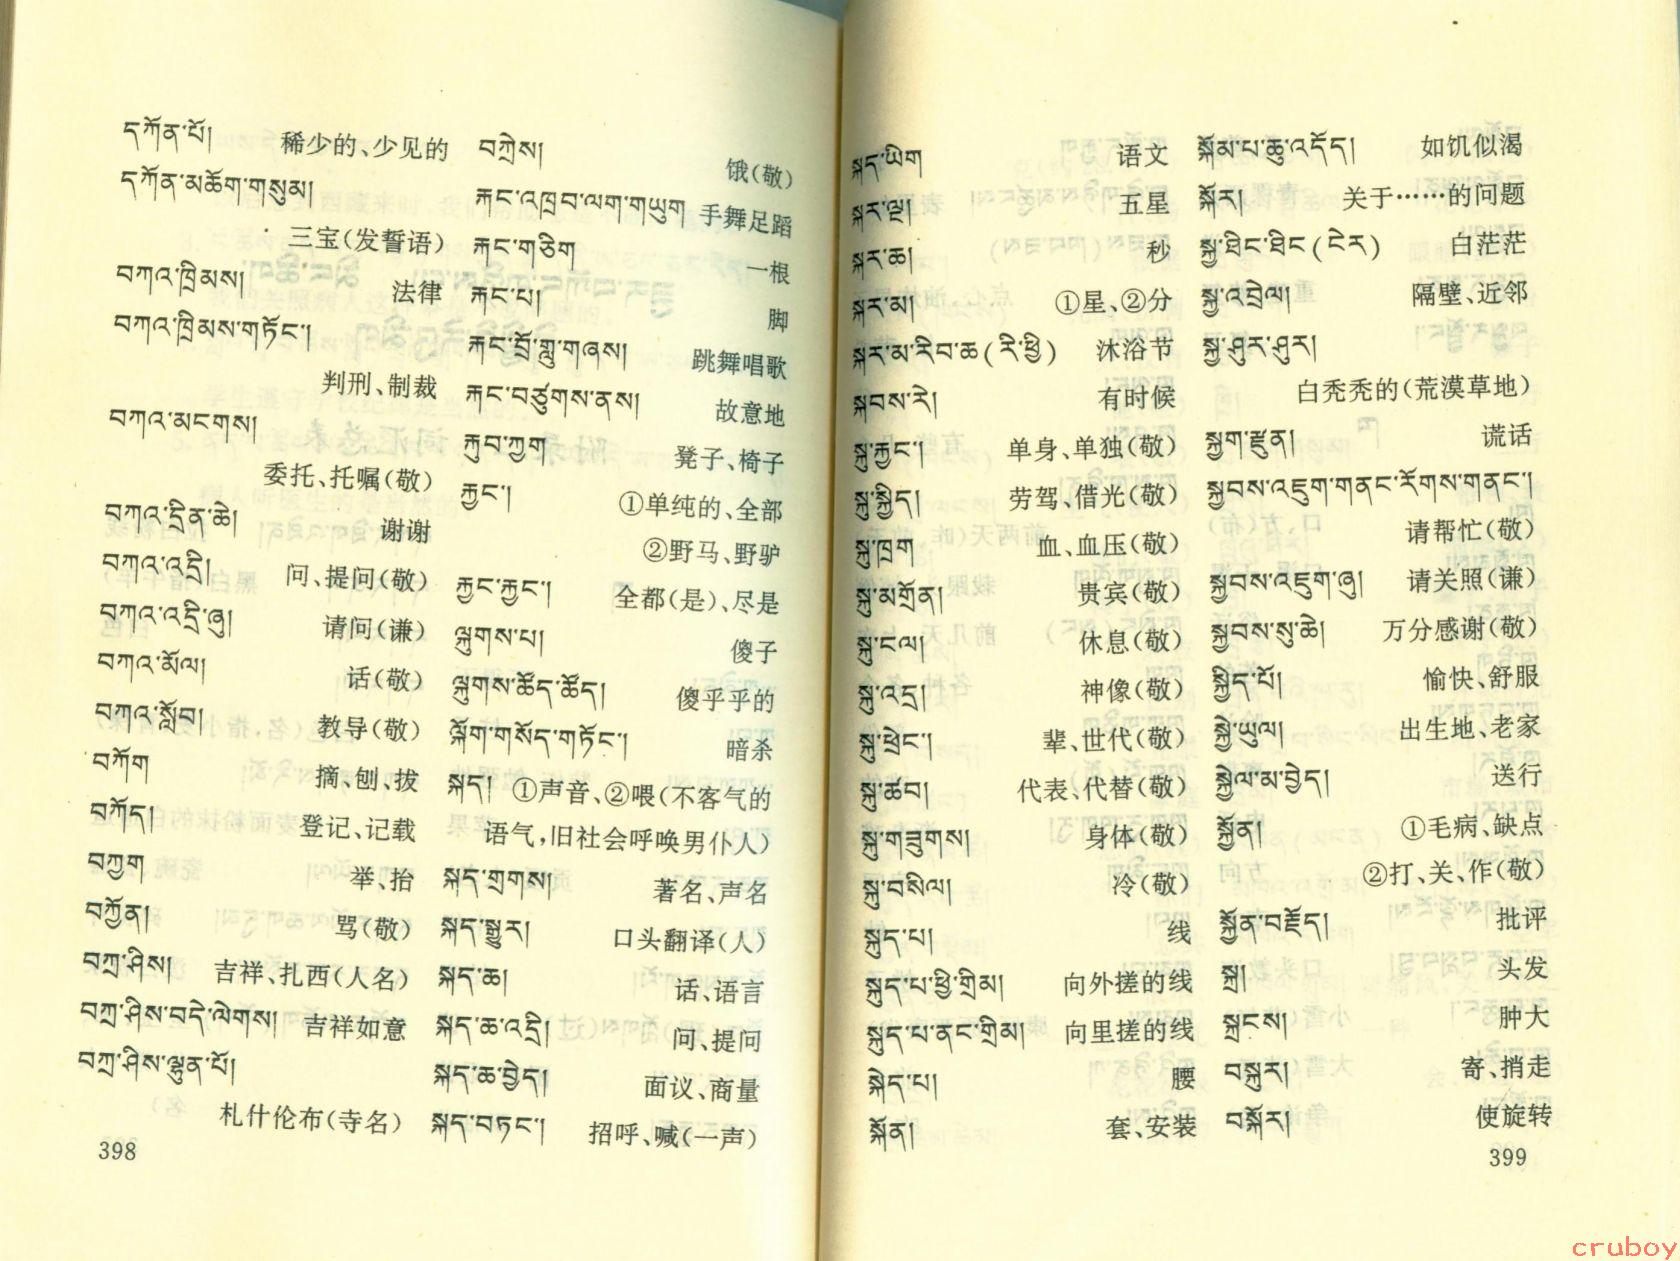 དཀོན་པོ། 稀少的、少见的
དཀོན་མཆོག་གསུམ།
三宝(发誓语)
བཀའ་ཁྲིམས། 法律
བཀའ་ཁྲིམས་གཏོང་།
判刑、制裁
བཀའ་མངགས།
委托、托嘱(敬)
བཀའ་དྲིན་ཆེ། 谢谢
བཀའ་འདྲི། 问、提问(敬)
བཀའ་འདྲི་ཞུ། 请问(谦)
བཀའ་མོལ། 话(敬)
བཀའ་སློབ། 教导(敬)
བཀོག 摘、刨、拔
བཀོད། 登记、记载
བཀྱག 举、抬
བཀྱོན། 骂(敬)
བཀྲ་ཤིས། 吉祥、扎西(人名)
བཀྲ་ཤིས་བདེ་ལེགས། 吉祥如意
བཀྲ་ཤིས་ལྷུན་པོ།
札什伦布(寺名)
398
བཀྲེས། 饿(敬)
རྐང་འཁྲབ་ལག་གཡུག 手舞足蹈
རྐང་གཅིག 一根
རྐང་པ། 脚
རྐང་བྲོ་གླུ་གཞས། 跳舞唱歌
རྐང་བཙུགས་ནས། 故意地
རྐུབ་ཀྱག 凳子、椅子
རྐྱང་། ①单纯的、全部
②野马、野驴
རྐྱང་རྐྱང་། 全都(是)、尽是
ལྐུགས་པ། 傻子
ལྐུགས་ཚོད་ཚོད། 傻乎乎的
ལྐོག་གསོད་གཏོང་། 暗杀
སྐད། ①声音、②喂(不客气的
语气,旧社会呼唤男仆人)
སྐད་གྲགས། 著名、声名
སྐད་སྒྱུར། 口头翻译(人)
སྐད་ཆ། 话、语言
སྐད་ཆ་འདྲི། 问、提问
སྐད་ཆ་བྱེད། 面议、商量
སྐད་བཏང་། 招呼、喊(一声)
སྐད་ཡིག 语文
སྐར་ལྔ། 五星
སྐར་ཆ། 秒
སྐར་མ། ①星、②分
སྐར་མ་རིབ་ཆ(རི་ཕྱི) 沐浴节
སྐབས་རེ། 有时候
སྐུ་རྐྱང་། 单身、单独(敬)
སྐུ་སྐྱིད། 劳驾、借光(敬)
སྐུ་ཁྲག 血、血压(敬)
སྐུ་མགྲོན། 贵宾(敬)
སྐུ་ངལ། 休息(敬)
སྐུ་འདྲ། 神像(敬)
སྐུ་ཕྲེང་། 辈、世代(敬)
སྐུ་ཚབ། 代表、代替(敬)
སྐུ་གཟུགས། 身体(敬)
སྐུ་བསིལ། 冷(敬)
སྐུད་པ། 线
སྐུད་པ་ཕྱི་གྲིམ། 向外搓的线
སྐུད་པ་ནང་གྲིམ། 向里搓的线
སྐེད་པ། 腰
སྐོན། 套、安装
སྐོམ་པ་ཆུ་འདོད། 如饥似渴
སྐོར། 关于……的问题
སྐྱ་ཐིང་ཐིང་(ངེར) 白茫茫
སྐྱ་འབྲེལ། 隔壁、近邻
སྐྱ་ཤུར་ཤུར།
白秃秃的(荒漠草地)
སྐྱག་རྫུན། 谎话
སྐྱབས་འཇུག་གནང་རོགས་གནང་།
请帮忙(敬)
སྐྱབས་འཇུག་ཞུ། 请关照(谦)
སྐྱབས་སུ་ཆེ། 万分感谢(敬)
སྐྱིད་པོ། 愉快、舒服
སྐྱེ་ཡུལ། 出生地、老家
སྐྱེལ་མ་བྱེད། 送行
སྐྱོན། ①毛病、缺点
②打、关、作(敬)
སྐྱོན་བརྗོད། 批评
སྐྲ། 头发
སྐྲངས། 肿大
བསྐུར། 寄、捎走
བསྐོར། 使旋转
399
cruboy